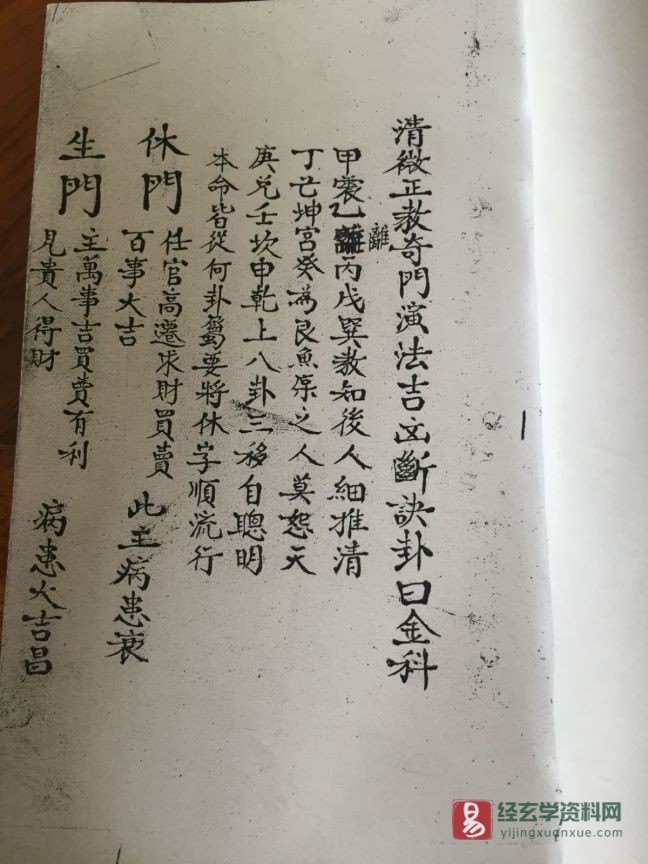 清微正教奇門演法吉凶斷訣卦曰金科
甲震乙離丙戊巽教知後人細推清
丁亡坤宮癸為艮魚深之人莫怨天
庚兌壬坎申乾上八卦三移自聰明
本命皆從何卦篘要將休字順流行
休門
仕官高遷求財買賣
百事大吉
此主病患衰
生門
主萬事吉買賣有利
見貴人得財
病患大吉昌
易 经玄学资料网
yijingxuanxue.com